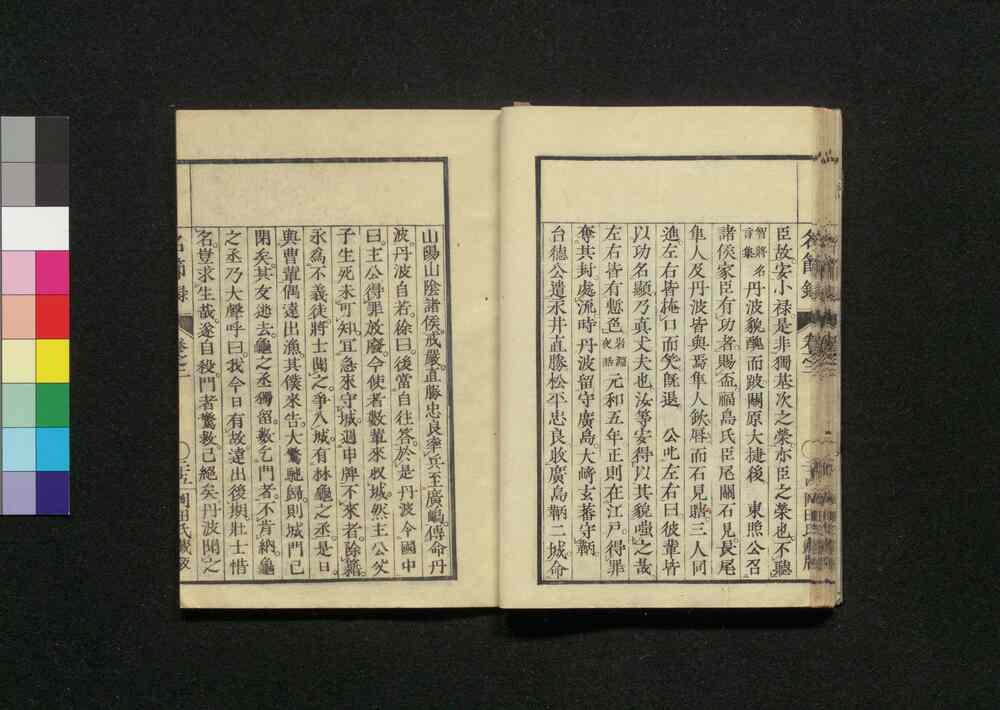 臣故安小祿是非獨基次之榮亦臣之榮也不聽
智將名言集丹波貌醜而跛關原大捷後　東照公召
諸侯家臣有功者賜盃福島氏臣尾關石見長尾
隼人及丹波皆與焉隼人欽唇而石見瞎三人同
進左右皆掩口而笑旣退　公叱左右曰彼輩皆
以功名顯乃真丈夫也汝等安得以其貌嗤之哉
左右皆有慙色岩淵夜話元和五年正則在江戶得罪
奪其封處流時丹波留守廣島大崎玄蕃守鞆
台德公遣永井直勝松平忠良收廣島鞆二城命
名節錄　卷之二
岡田氏藏版
山陽山陰諸侯戒嚴直勝忠良率兵至廣嶋傳命丹
波丹波自若徐曰後當自往答於是丹波令國中
曰主公得罪放廢今使者數輩來收城然主公父
子生死未可知宜急來守城過申牌不來者除籍
永爲不義徒將士聞之爭入城有林龜之丞是日
與曹輩偶遠出漁其僕來告大驚馳歸則城門已
閉矣其友逃去龜之丞獨留數乞門者不肯納龜
之丞乃大聲呼曰我今日有故遠出後期壯士惜
名豈求生哉遂自殺門者驚救已絕矣丹波聞之
名節錄　卷之二　　五　岡田氏藏版